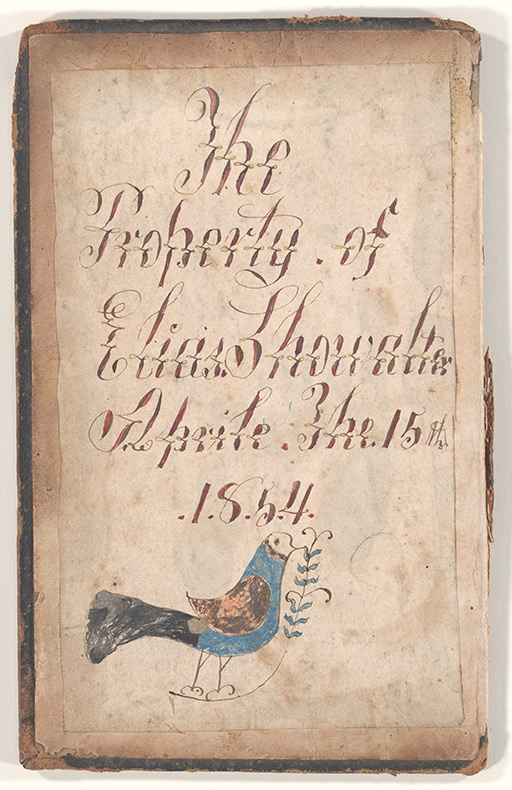 The
Property . of
Elias Showalter
Aprile . The 15th
.1.8.54.